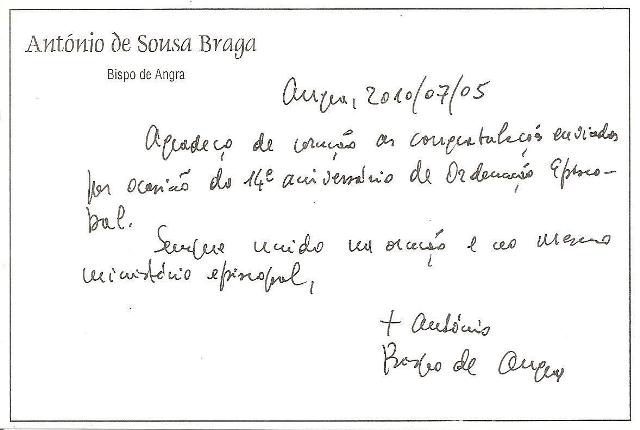 António de Sousa Braga
Bispo de Angra
Angra, 2010/07/05
Agradeço de coração as congratulações enviadas
por ocasião do 14º aniversário de Ordenação Episco-
pal.
Sempre unido na oração e no mesmo
ministério episcopal,
+ António
Bispo de Angra